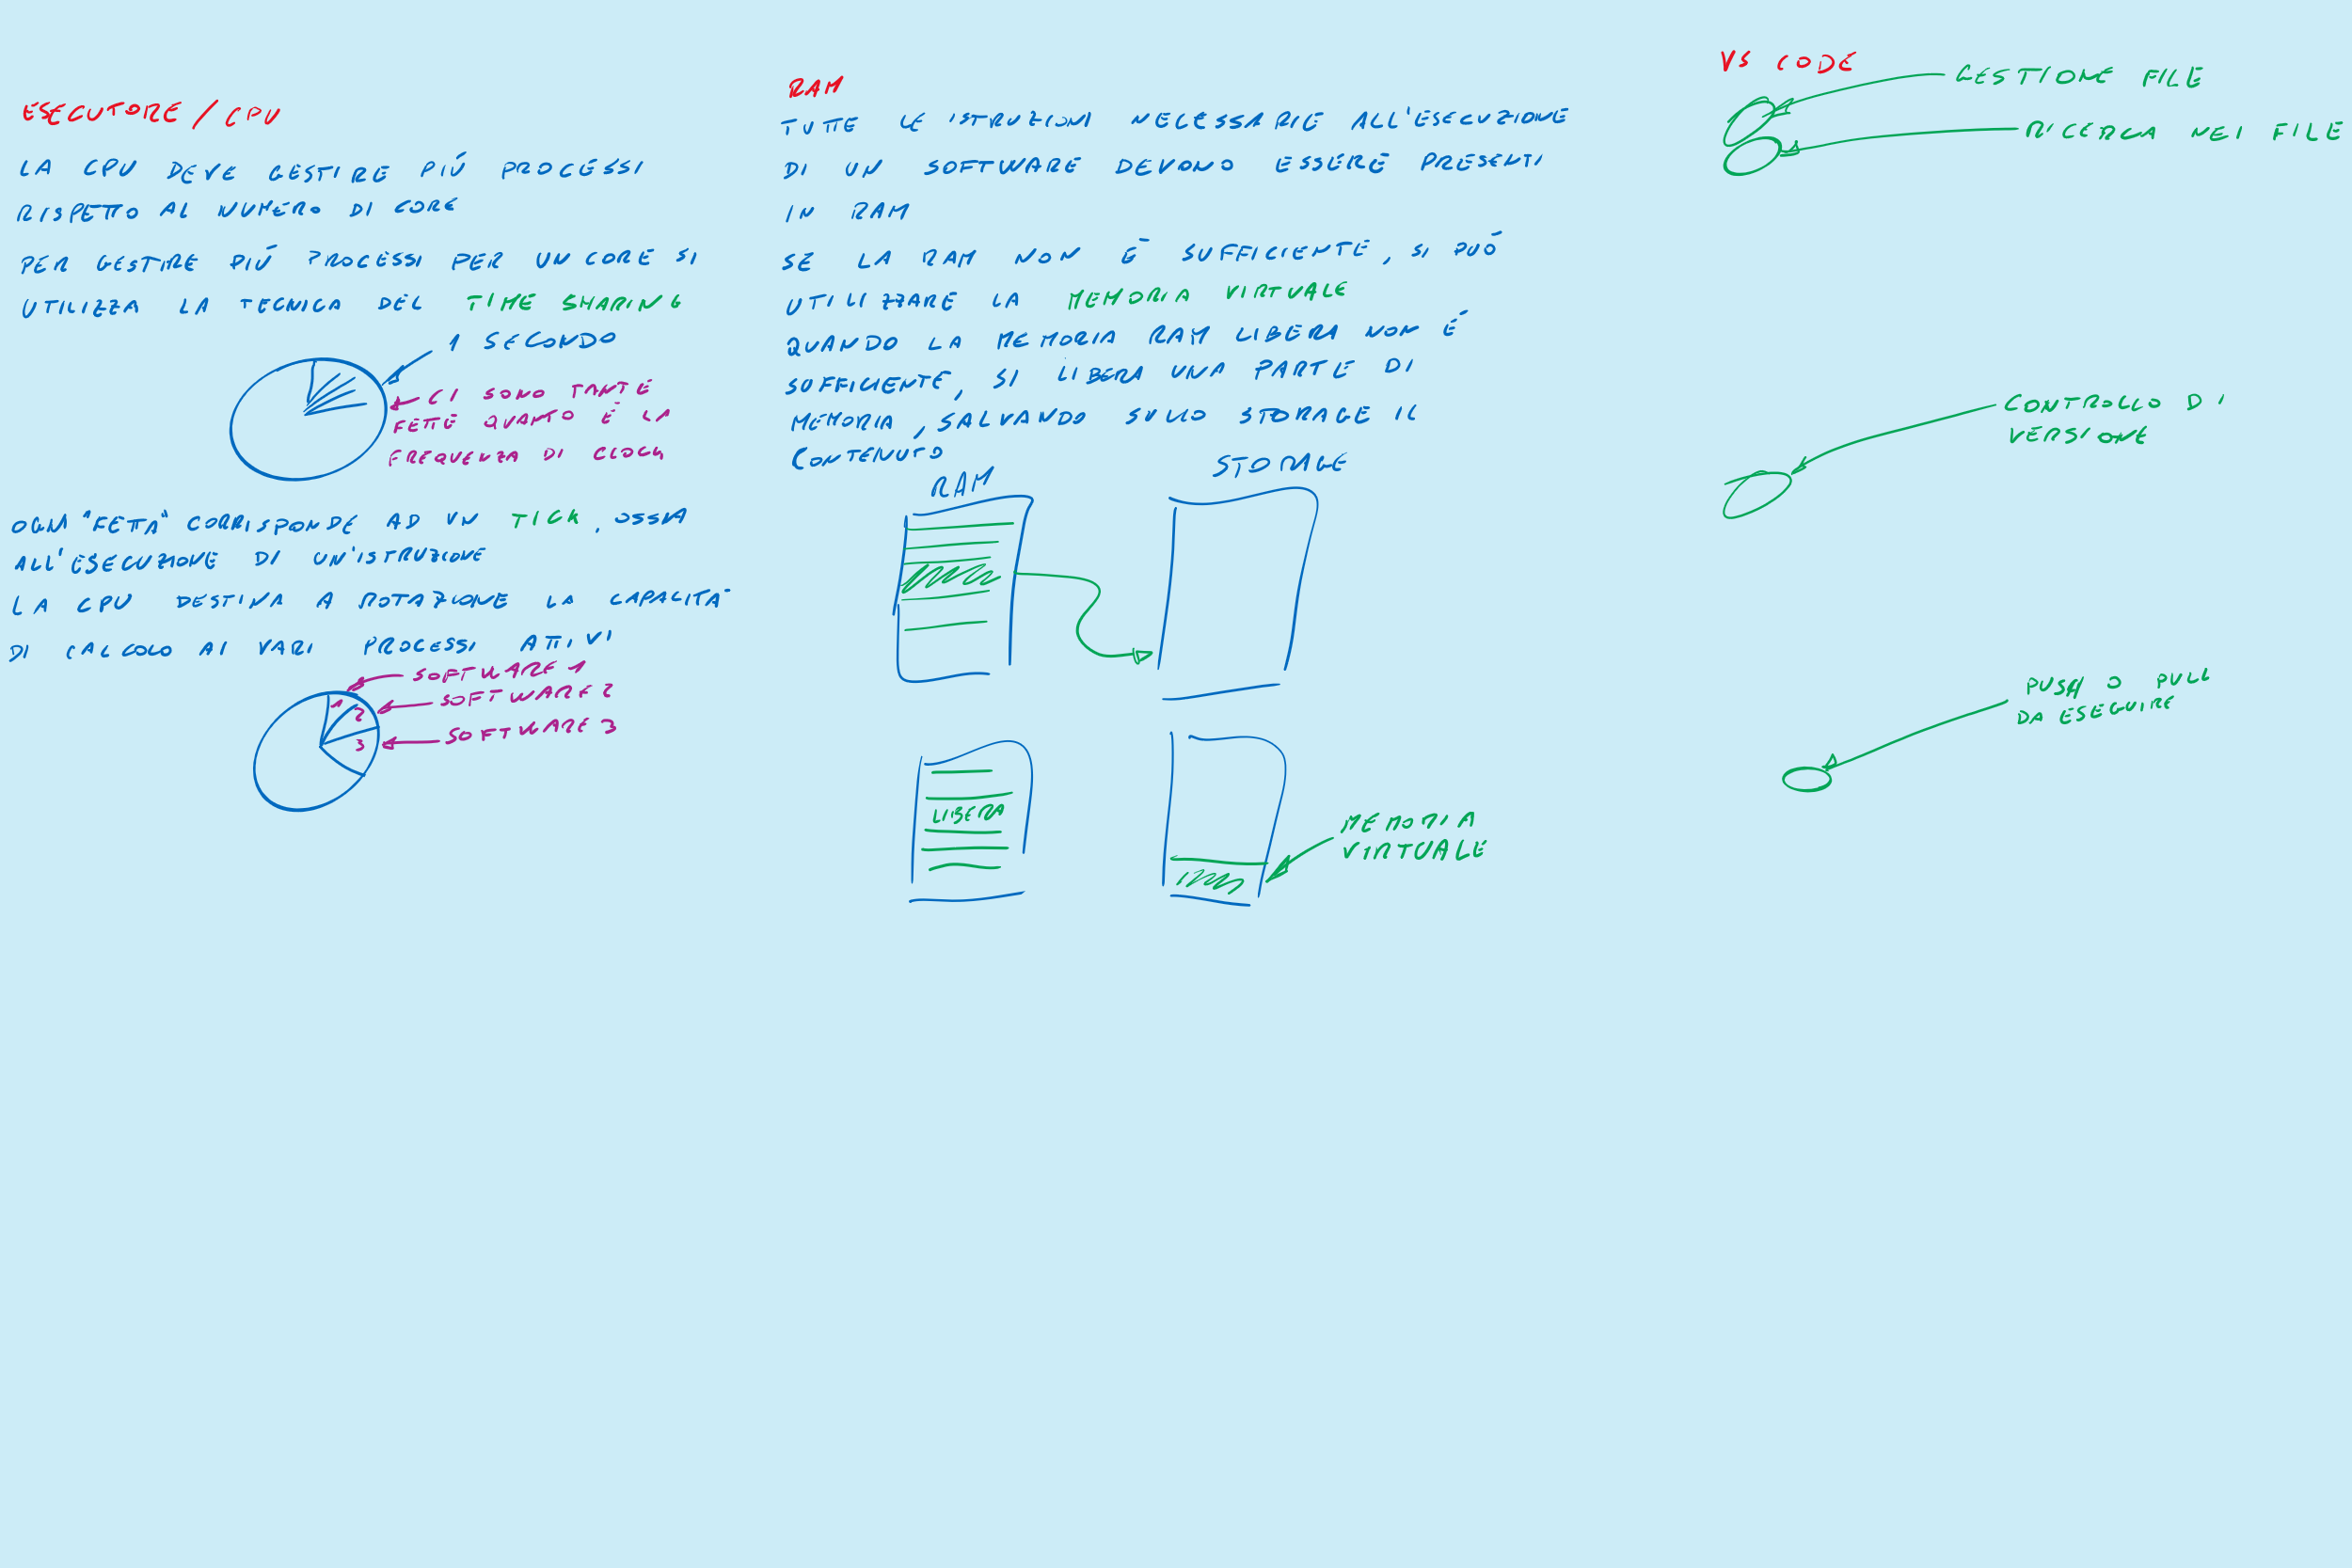 ESECUTORE / CPU
LA CPU DEVE GESTIRE PIÚ PROCESSI
RISPETTO AL NUMERO DI CORE
PER GESTIRE PIÚ PROCESSI PER UN CORE SI
UTILIZZA LA TECNICA DEL TIME SHARING
1 SECONDO
CI SONO TANTE
FETTE QUANTO È LA
FREQUENZA DI CLOCK
OGNI "FETTA" CORRISPONDE AD UN TICK, OSSIA
ALL'ESECUZIONE DI UN'ISTRUZIONE
LA CPU DESTINA A ROTAZIONE LA CAPACITA'
DI CALCOLO AI VARI PROCESSI ATTIVI
SOFTWARE 1
SOFTWARE 2
SOFTWARE 3
1
2
3
RAM
TUTTE LE ISTRUZIONI NECESSARIE ALL'ESECUZIONE
DI UN SOFTWARE DEVONO ESSERE PRESENTI
IN RAM
SE LA RAM NON È SUFFICIENTE, SI PUÓ
UTILIZZARE LA MEMORIA VIRTUALE
QUANDO LA MEMORIA RAM LIBERA NON É
SUFFICIENTE, SI LIBERA UNA PARTE DI
MEMORIA, SALVANDO SULLO STORAGE IL
CONTENUTO
RAM
STORAGE
LIBERA
MEMORIA
VIRTUALE
VS CODE
GESTIONE FILE
RICERCA NEI FILE
CONTROLLO DI
VERSIONE
PUSH O PULL
DA ESEGUIRE